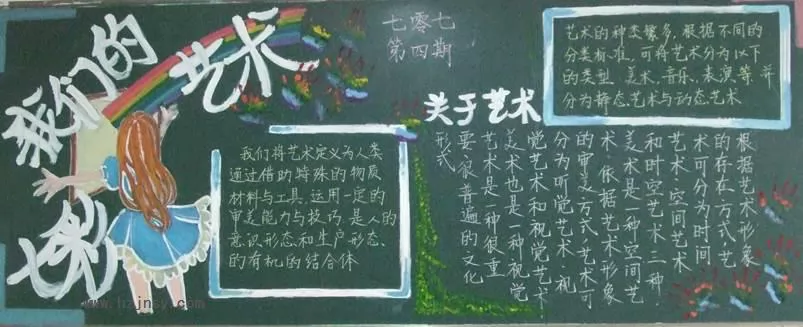 我们的
七彩
艺术
七零七
第四期
我们将艺术定义为人类
通过借助特殊的物质
材料与工具,运用一定的
审美能力与技巧,是人的
意识形态和生产形态、
的有机的结合体
关于艺术
艺术的种类繁多,根据不同的
分类标准,可将艺术分为以下
的类型,美术、音乐、表演等,并
分为静态艺术与动态艺术
根据艺术形象
的存在方式,艺
术可分为时间
艺术、空间艺术
和时空艺术三种,
美术是一种空间艺
术.依据艺术形象
的审美方式,艺术可
分为听觉艺术、视
觉艺术和视觉艺术
美术也是一种视觉
艺术是一种很重
要很普遍的文化
形式